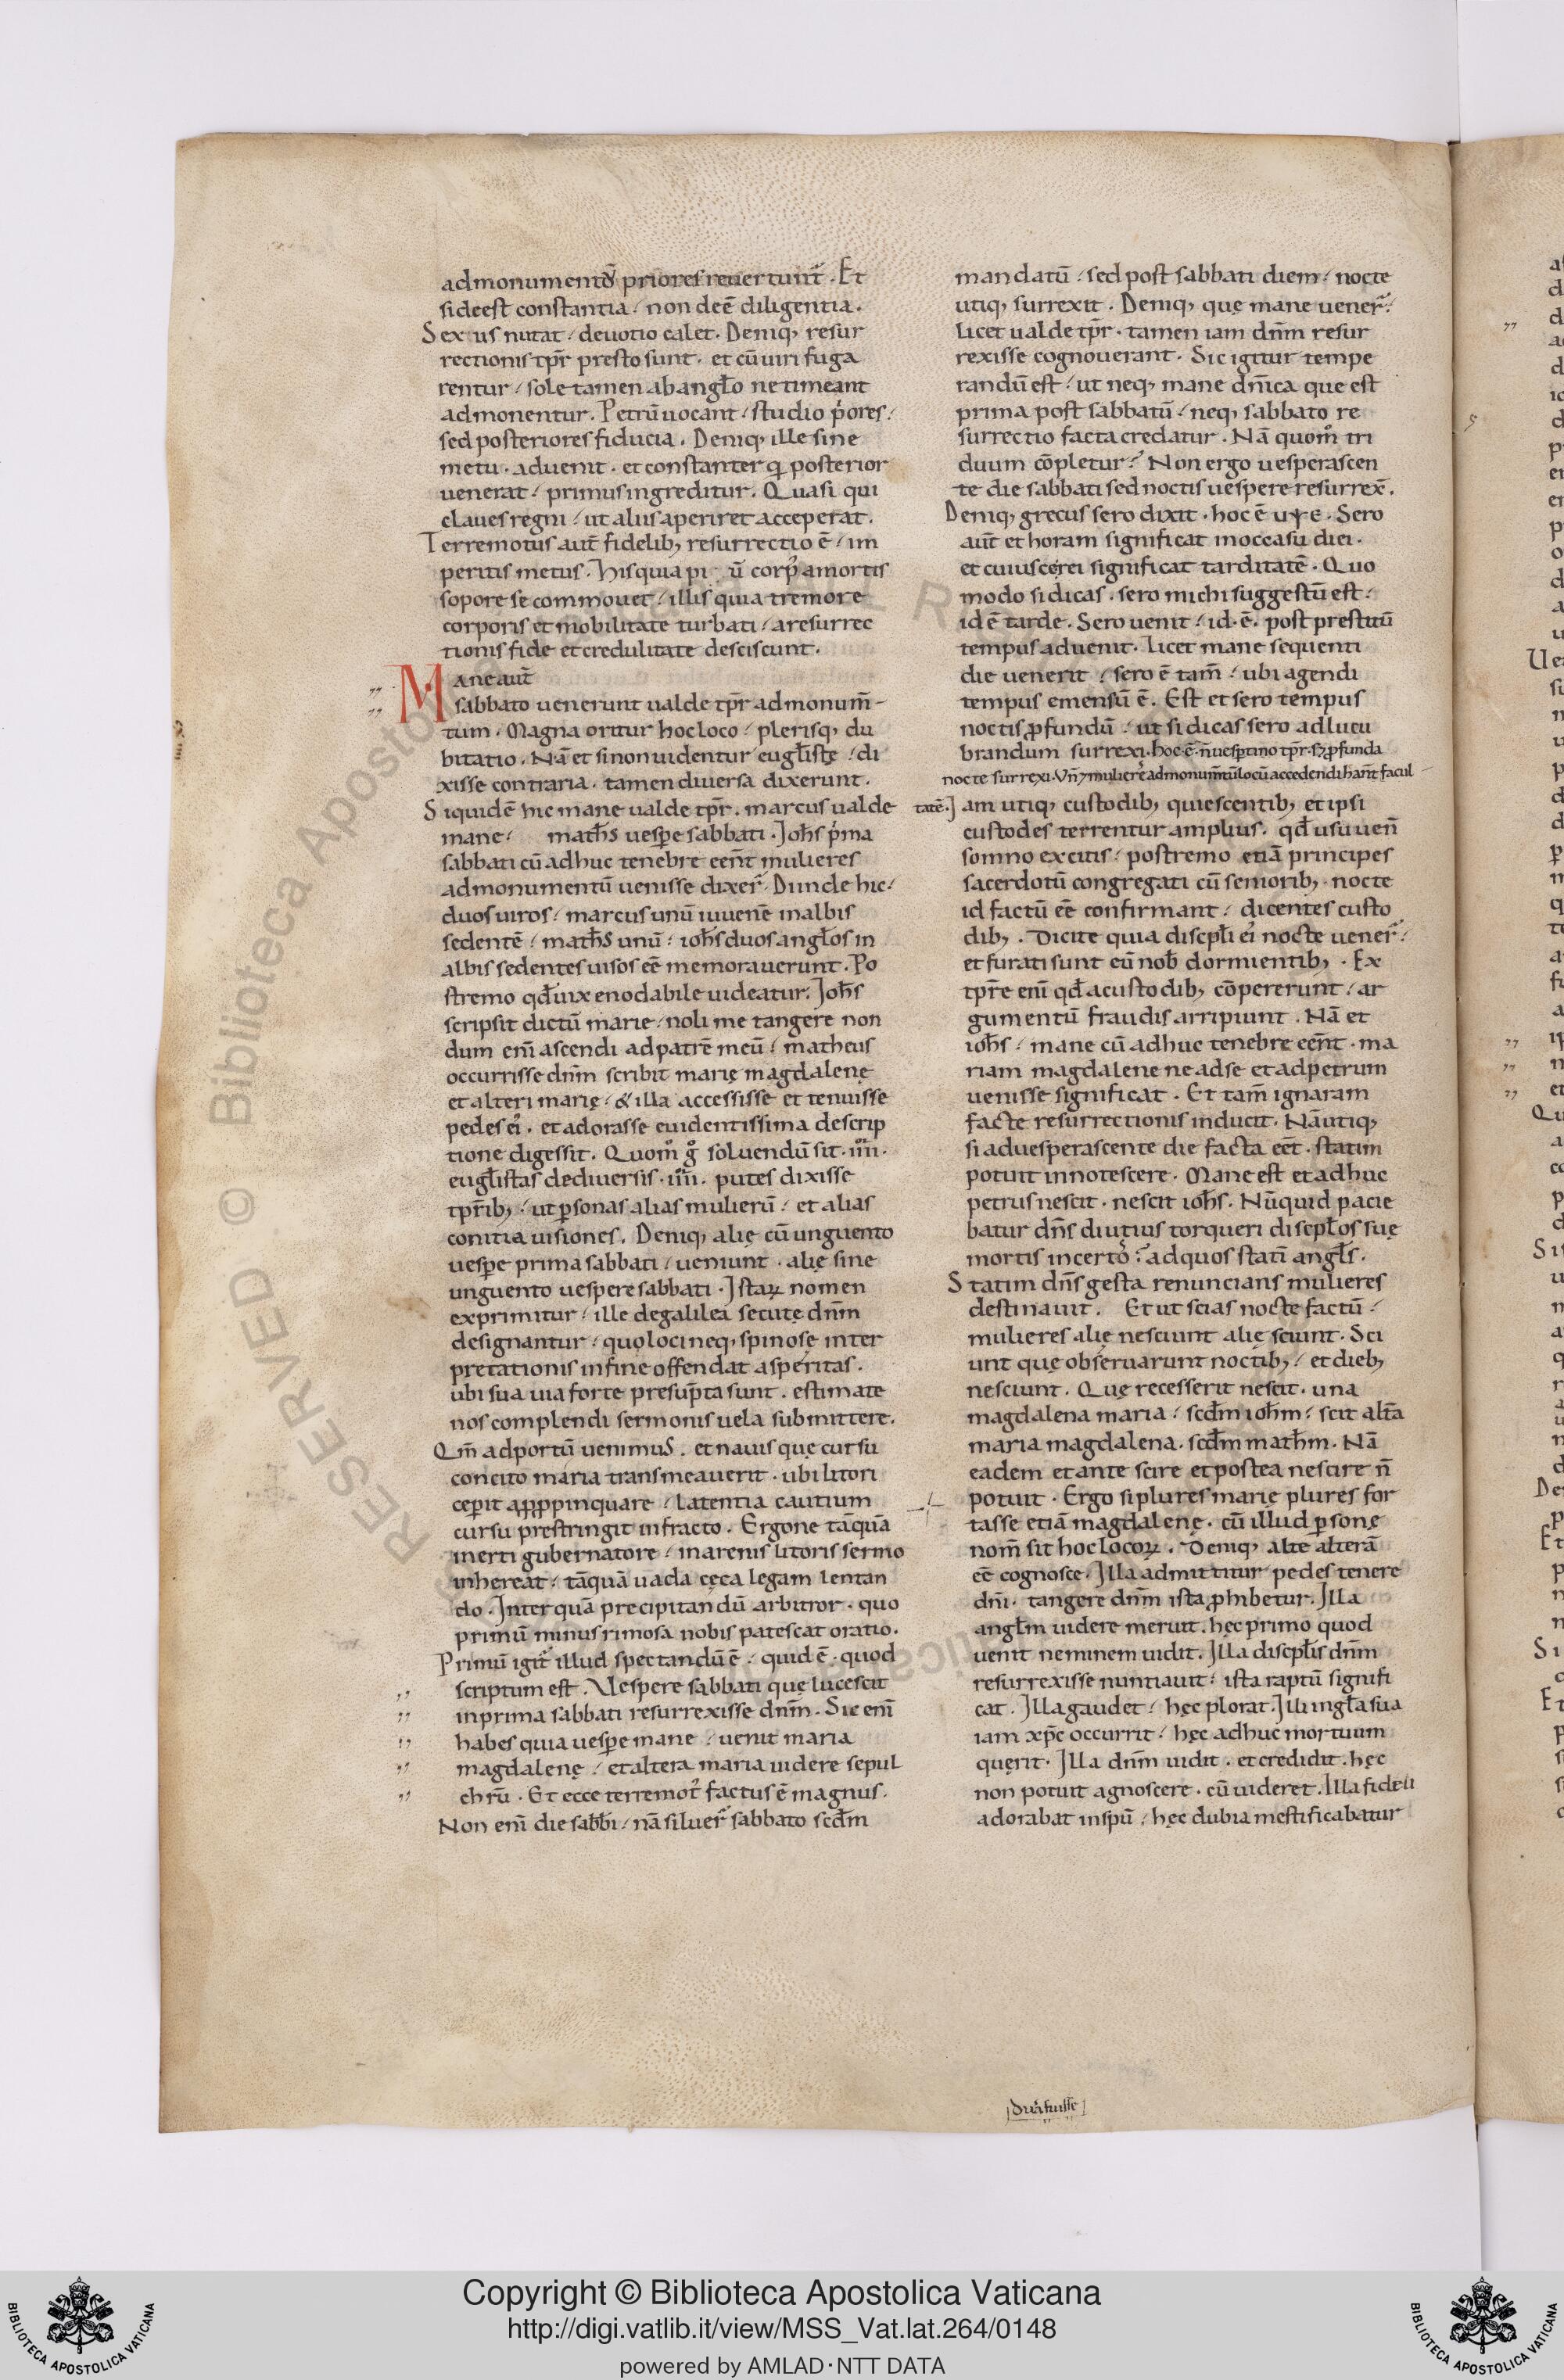 ad monumentū priores reuertunt̄. Et
si deest constantia, non deē diligentia.
Sexus nutat, deuotio calet. Deniq; resur
rectionis tp̄r presto sunt. et cū uiri fuga
rentur, sole tamen ab angł̄o ne timeant
admonentur. Petrū uocant, studio p̓ores,
sed posteriores fiducia. Deniq; ille sine
metu. aduenit. et constanter q̨ posterior
uenerat, primus ingreditur. Quasi qui
claues regni, ut aliis aperiret acceperat.
Terremotus aut̄ fidelib; resurrectio ē, im
peritis metus. His quia pi ū corp̓ a mortis
sopore se commouet, illis quia tremore
corporis et mobilitate turbati, a resurrec
tionis fide et credulitate desciscunt.
Mane aut̄
sabbato uenerunt ualde tp̄r ad monum̄
tum. Magna oritur hoc loco, plerisq; du
bitatio. Nā et si non uidentur eugl̄istę, di
xisse contraria. tamen diuersa dixerunt.
Siquidē hic mane ualde tp̄r. marcus ualde
mane, math̄s uespe sabbati. Joh̄s p̓ma
sabbati cū adhuc tenebre eēnt mulieres
ad monumentū uenisse dixer̄. Dunde hic,
duos uiros, marcus unū iuuenē in albis
sedentē, math̄s unū, ioh̄s duos angł̄os in
albis sedentes uisos eē memorauerunt. Po
stremo qd̄ uix enodabile uideatur. Joh̄s
scripsit dictū marie, noli me tangere non
dum enī ascendi ad patrē meū, matheus
occurrisse dn̄m scribit marię magdalenę
et alteri marię, & illa accessisse et tenuisse
pedes ei̓. et adorasse euidentissima descrip
tione digessit. Quom̊ g̊ soluendū sit. iiii.
eugl̄istas de diuersis. iiii. putes dixisse
tp̄rib;, ut p̱sonas alias mulierū, et alias
conitia uisiones. Deniq; alię cū unguento
uespe prima sabbati, ueniunt. alię sine
unguento uespere sabbati. Istaꝝ nomen
exprimitur, ille de galilea secutę dn̄m
designantur, quo loci neq; spinosę inter
pretationis in fine offendat asperitas.
ubi sua uia forte presūpta sunt. estimate
nos complendi sermonis uela submittere.
Qm̄ ad portū uenimus. et nauis quę cursu
concito maria transmeauerit. ubi litori
cep̱it apꝓpinquare, latentia cautium
cursu prestringit infracto. Ergone tāquā
inerti gubernatore, in arenis litoris sermo
inhereat, tāquā uada cęca legam lentan
do. Inter quā precipitandū arbitror. quo
primū minus rimosa nobis patescat oratio.
Primū igit̄ illud spectandū ē, quid ē. quod
scriptum est. Vespere sabbati quę lucescit
in prima sabbati resurrexisse dn̄m. Sic enī
habes quia uespe mane, uenit maria
magdalenę, et altera maria uidere sepul
chrū. Et ecce terremot̓ factus ē magnus.
Non enī die sabb̄i, nā siluer̄ sabbato scd̄m
mandatū, sed post sabbati diem, nocte
utiq; surrexit. Deniq; quę mane uener̄,
licet ualde tp̄r. tamen iam dn̄m resur
rexisse cognouerant. Sic igitur tempe
randū est, ut neq; mane dn̄ica que est
prima post sabbatū, neq; sabbato re
surrectio facta credatur. Nā quom̊ tri
duum cōpletur? Non ergo uesperascen
te die sabbati sed noctis uespere resurrex̄.
Deniq; grecus sero dixit. hoc ē υψε. Sero
aut̄ et horam significat in occasu diei.
et cuiusce rei significat tarditatē. Quo
modo si dicas. sero michi suggestū est,
id ē tarde. Sero uenit, id. ē. post prestitū
tempus aduenit. Licet mane sequenti
die uenerit, sero ē tam̄, ubi agendi
tempus emensū ē. Est et sero tempus
noctis ꝓfundū, ut si dicas sero ad lucu
brandum surrexi. hoc. ē. n̄ uesp̱tino tp̄r. sꝫ ꝓfunda
nocte surrexi. Vn̄ ⁊ muliere̓ ad monum̄tū locū accedendi har̄nt facul
tatē. Jam utiq; custodib; quiescentib; et ipsi
custodes terrentur amplius. qd̄ usu uen̄
somno excitis, postremo etiā principes
sacerdotū congregati cū seniorib;. nocte
id factū eē confirmant, dicentes custo
dib;. Dicite quia discpl̄i ei̓ nocte uener̄,
et furati sunt eū nob̄ dormientib;. Ex
tp̄re enī qd̄ a custodib; cōpererunt, ar
gumentū fraudis arripiunt. Nā et
ioh̄s, mane cū adhuc tenebre eēnt. ma
riam magdalene ne ad se et ad petrum
uenisse significat. Et tam̄ ignaram
facte resurrectionis inducit. Nā utiq;
si aduesperascente die facta eēt. statim
potuit innotescere. Mane est et adhuc
petrus nescit. nescit ioh̄s. Nūquid pacie
batur dn̄s diutius torqueri discpl̄os suę
mortis incerto̓? ad quos statī angł̄s.
Statim dn̄s gesta renuncians mulieres
destinauit. Et ut scias nocte factū,
mulieres alię nesciunt alię sciunt. Sci
unt quę obseruarunt noctib;, et dieb;
nesciunt. Quę recesserit nescit. una
magdalena maria, scd̄m ioh̄m, scit alt̄a
maria magdalena. scd̄m math̄m. Nā
eadem et ante scire et postea nescire n̄
potuit. Ergo si plures marię plures for
tasse etiā magdalenę. cū illud p̱sonę
nom̄ sit hoc locoꝝ. Deniq; alte alterā
eē cognosce. Illa admittitur pedes tenere
dn̄i. tangere dn̄m ista ꝓhibetur. Illa
angł̄m uidere meruit. hęc primo quod
uenit neminem uidit. Illa discpl̄is dn̄m
resurrexisse nuntiauit, ista raptū signifi
cat. Illa gaudet, hęc plorat. Illi in gł̄a sua
iam xp̄c occurrit, hęc adhuc mortuum
quęrit. Illa dn̄m uidit. et credidit. hęc
non potuit agnoscere. cū uideret. Illa fideli
adorabat in spū, hęc dubia mestificabatur
RESERVED © Biblioteca Apostolica Vaticana
Copyright © Biblioteca Apostolica Vaticana
http://digi.vatlib.it/view/MSS_Vat.lat.264/0148
powered by AMLAD·NTT DATA
BIBLIOTECA APOSTOLICA VATICANA
BIBLIOTECA APOSTOLICA VATICANA